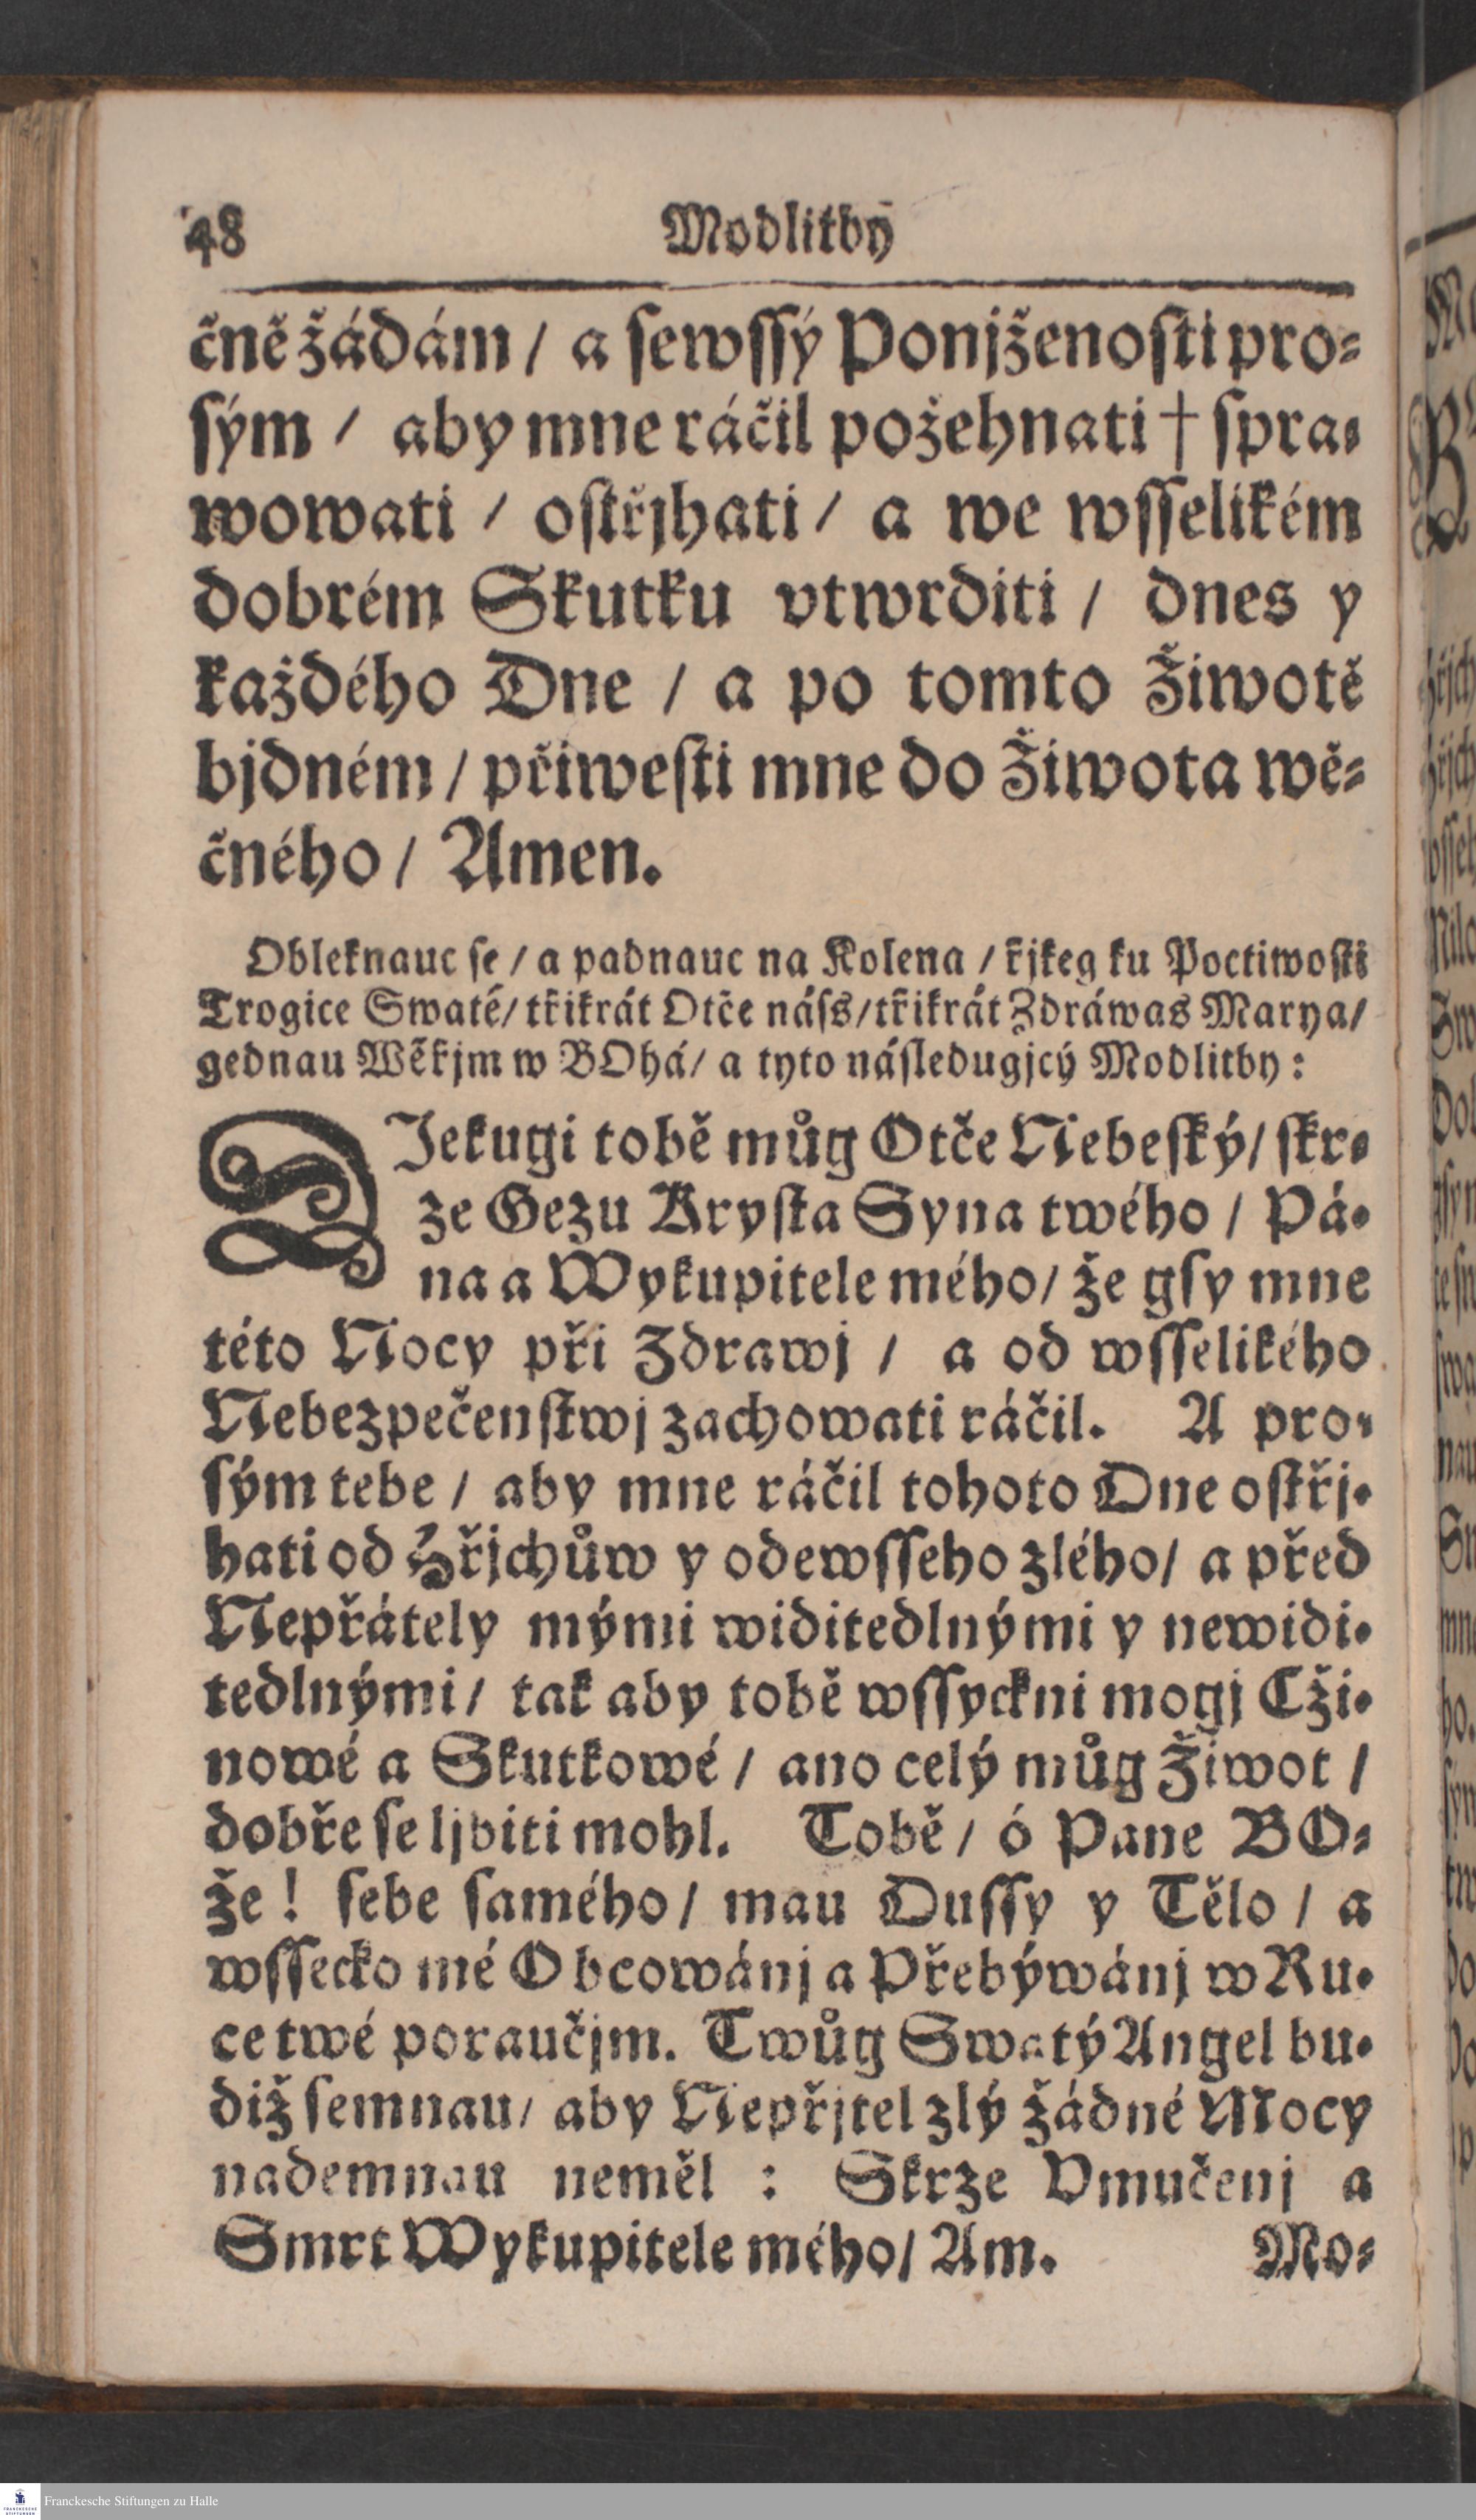 48 Modlitby
čně žádám / a sewssý Ponjženosti pro-
sým / aby mne ráčil požehnati † spra-
wowati / ostřjhati / a we wsselikém
dobrém Skutku vtwrditi / dnes y
každého Dne / a po tomto Žiwotě
bjdném / přiwesti mne do Žiwota wě-
čného / Amen.
Obleknauc se / a padnauc na Kolena / řjkeg ku Poctiwosti
Trogice Swaté / třikrát Otče náss / třikrát Zdráwas Marya /
gednau Wěřjm w BOhá / a tyto následugjcý Modlitby :
DJekugi tobě můg Otče Nebeský / skr-
ze Gezu Krysta Syna twého / Pá-
na a Wykupitele mého / že gsy mne
této Nocy při Zdrawj / a od wsselikého
Nebezpečenstwj zachowati ráčil. A pro-
sým tebe / aby mne ráčil tohoto Dne ostřj-
hati od Hřjchůw y odewsseho zlého / a před
Nepřátely mými widitedlnými y newidi-
tedlnými / tak aby tobě wssyckni mogj Cži-
nowé a Skutkowé / ano celý můg Žiwot /
dobře se ljbiti mohl. Tobě / ó Pane BO-
že ! sebe samého / mau Dussy y Tělo / a
wssecko mé Obcowánj a Přebýwánj w Ru-
ce twé poraučjm. Twůg Swatý Angel bu-
diž semnau / aby Nepřjtel zlý žádné Mocy
nademnau neměl : Skrze Vmučenj a
Smrt Wykupitele mého / Am. Mo-
Franckesche Stiftungen zu Halle